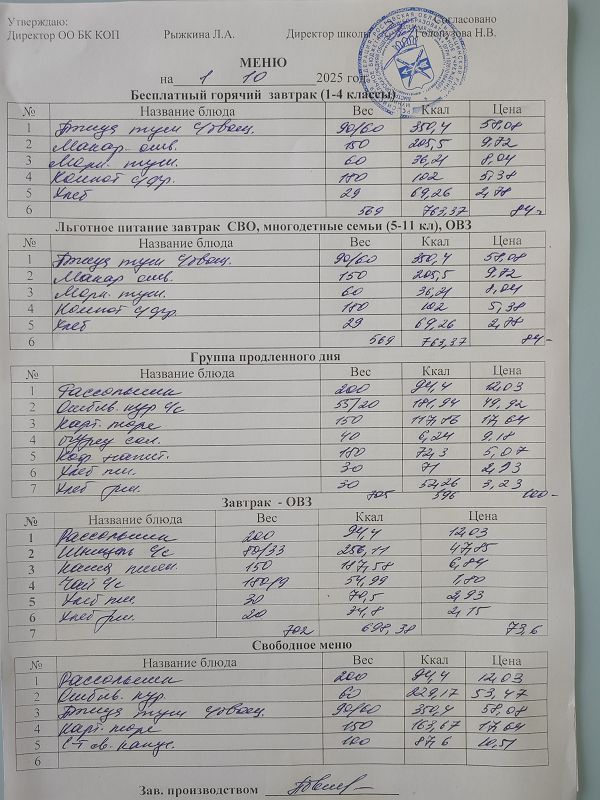 Утверждаю: Согласовано
Директор ОО БК КОП Рыжкина Л.А. Директор школы Голопузова Н.В.
МЕНЮ
на 1 10 2025 год
Бесплатный горячий завтрак (1-4 классы)
№ Название блюда Вес Ккал Цена
1 Птица туш с/овощ. 90/60 350,4 58,08
2 Макар. отв. 150 205,5 9,72
3 Морк. туш. 60 36,21 8,04
4 Компот с/фр. 180 102 5,38
5 Хлеб 29 69,26 2,78
6 569 763,37 84-
Льготное питание завтрак СВО, многодетные семьи (5-11 кл), ОВЗ
№ Название блюда Вес Ккал Цена
1 Птица туш с/овощ. 90/60 350,4 58,08
2 Макар отв. 150 205,5 9,72
3 Морк. туш. 60 36,21 8,04
4 Компот с/фр. 180 102 5,38
5 Хлеб 29 69,26 2,78
6 569 763,37 84-
Группа продленного дня
№ Название блюда Вес Ккал Цена
1 Рассольник 200 94,4 12,03
2 Отбив. кур с/с 55/20 181,94 49,92
3 Карт. пюре 150 117,86 17,64
4 огурец сол. 40 6,24 9,18
5 Коф. напит. 180 72,3 5,07
6 Хлеб пш. 30 71 2,93
7 Хлеб рж. 30 52,26 3,23
705 596 100-
Завтрак - ОВЗ
№ Название блюда Вес Ккал Цена
1 Рассольник 200 94,4 12,03
2 Шницель с/с 80/33 256,11 47,85
3 Каша пшен. 150 187,58 6,84
4 Чай с/с 180/9 54,99 1,80
5 Хлеб пш. 30 70,5 2,93
6 Хлеб рж. 20 34,8 2,15
7 702 698,38 73,6
Свободное меню
№ Название блюда Вес Ккал Цена
1 Рассольник 200 94,4 12,03
2 Отбив. кур. 60 229,17 53,47
3 Птица туш с/овощ. 90/60 350,4 58,08
4 Карт. пюре 150 163,67 17,64
5 С-т св. капус. 100 87,6 10,51
6
Зав. производством